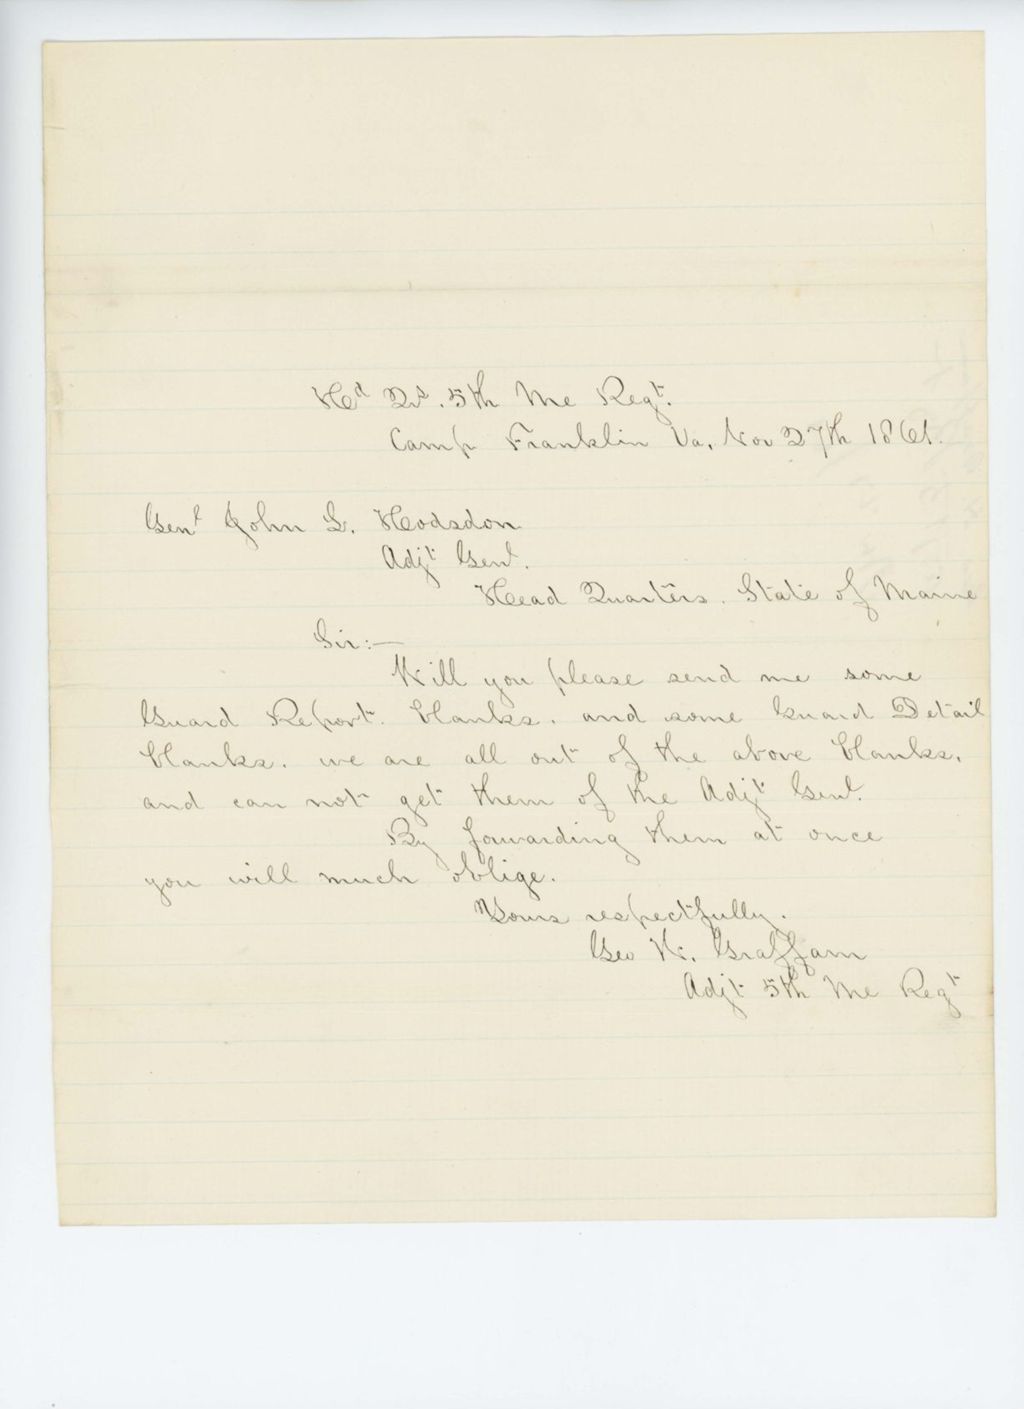 Hd Qrs. 5th Me Regt.
Camp Franklin Va, Nov 27th 1861.
Genl John L. Hodsdon
Adjt Genl.
Head Quarters. State of Maine
Sir:—
Will you please send me some
Guard Report. blanks. and some Guard Detail
blanks. we are all out of the above blanks,
and can not get them of the Adjt Genl.
By forwarding them at once
you will much oblige.
Yours respectfully.
Geo W. Graffam
Adjt 5th Me Regt